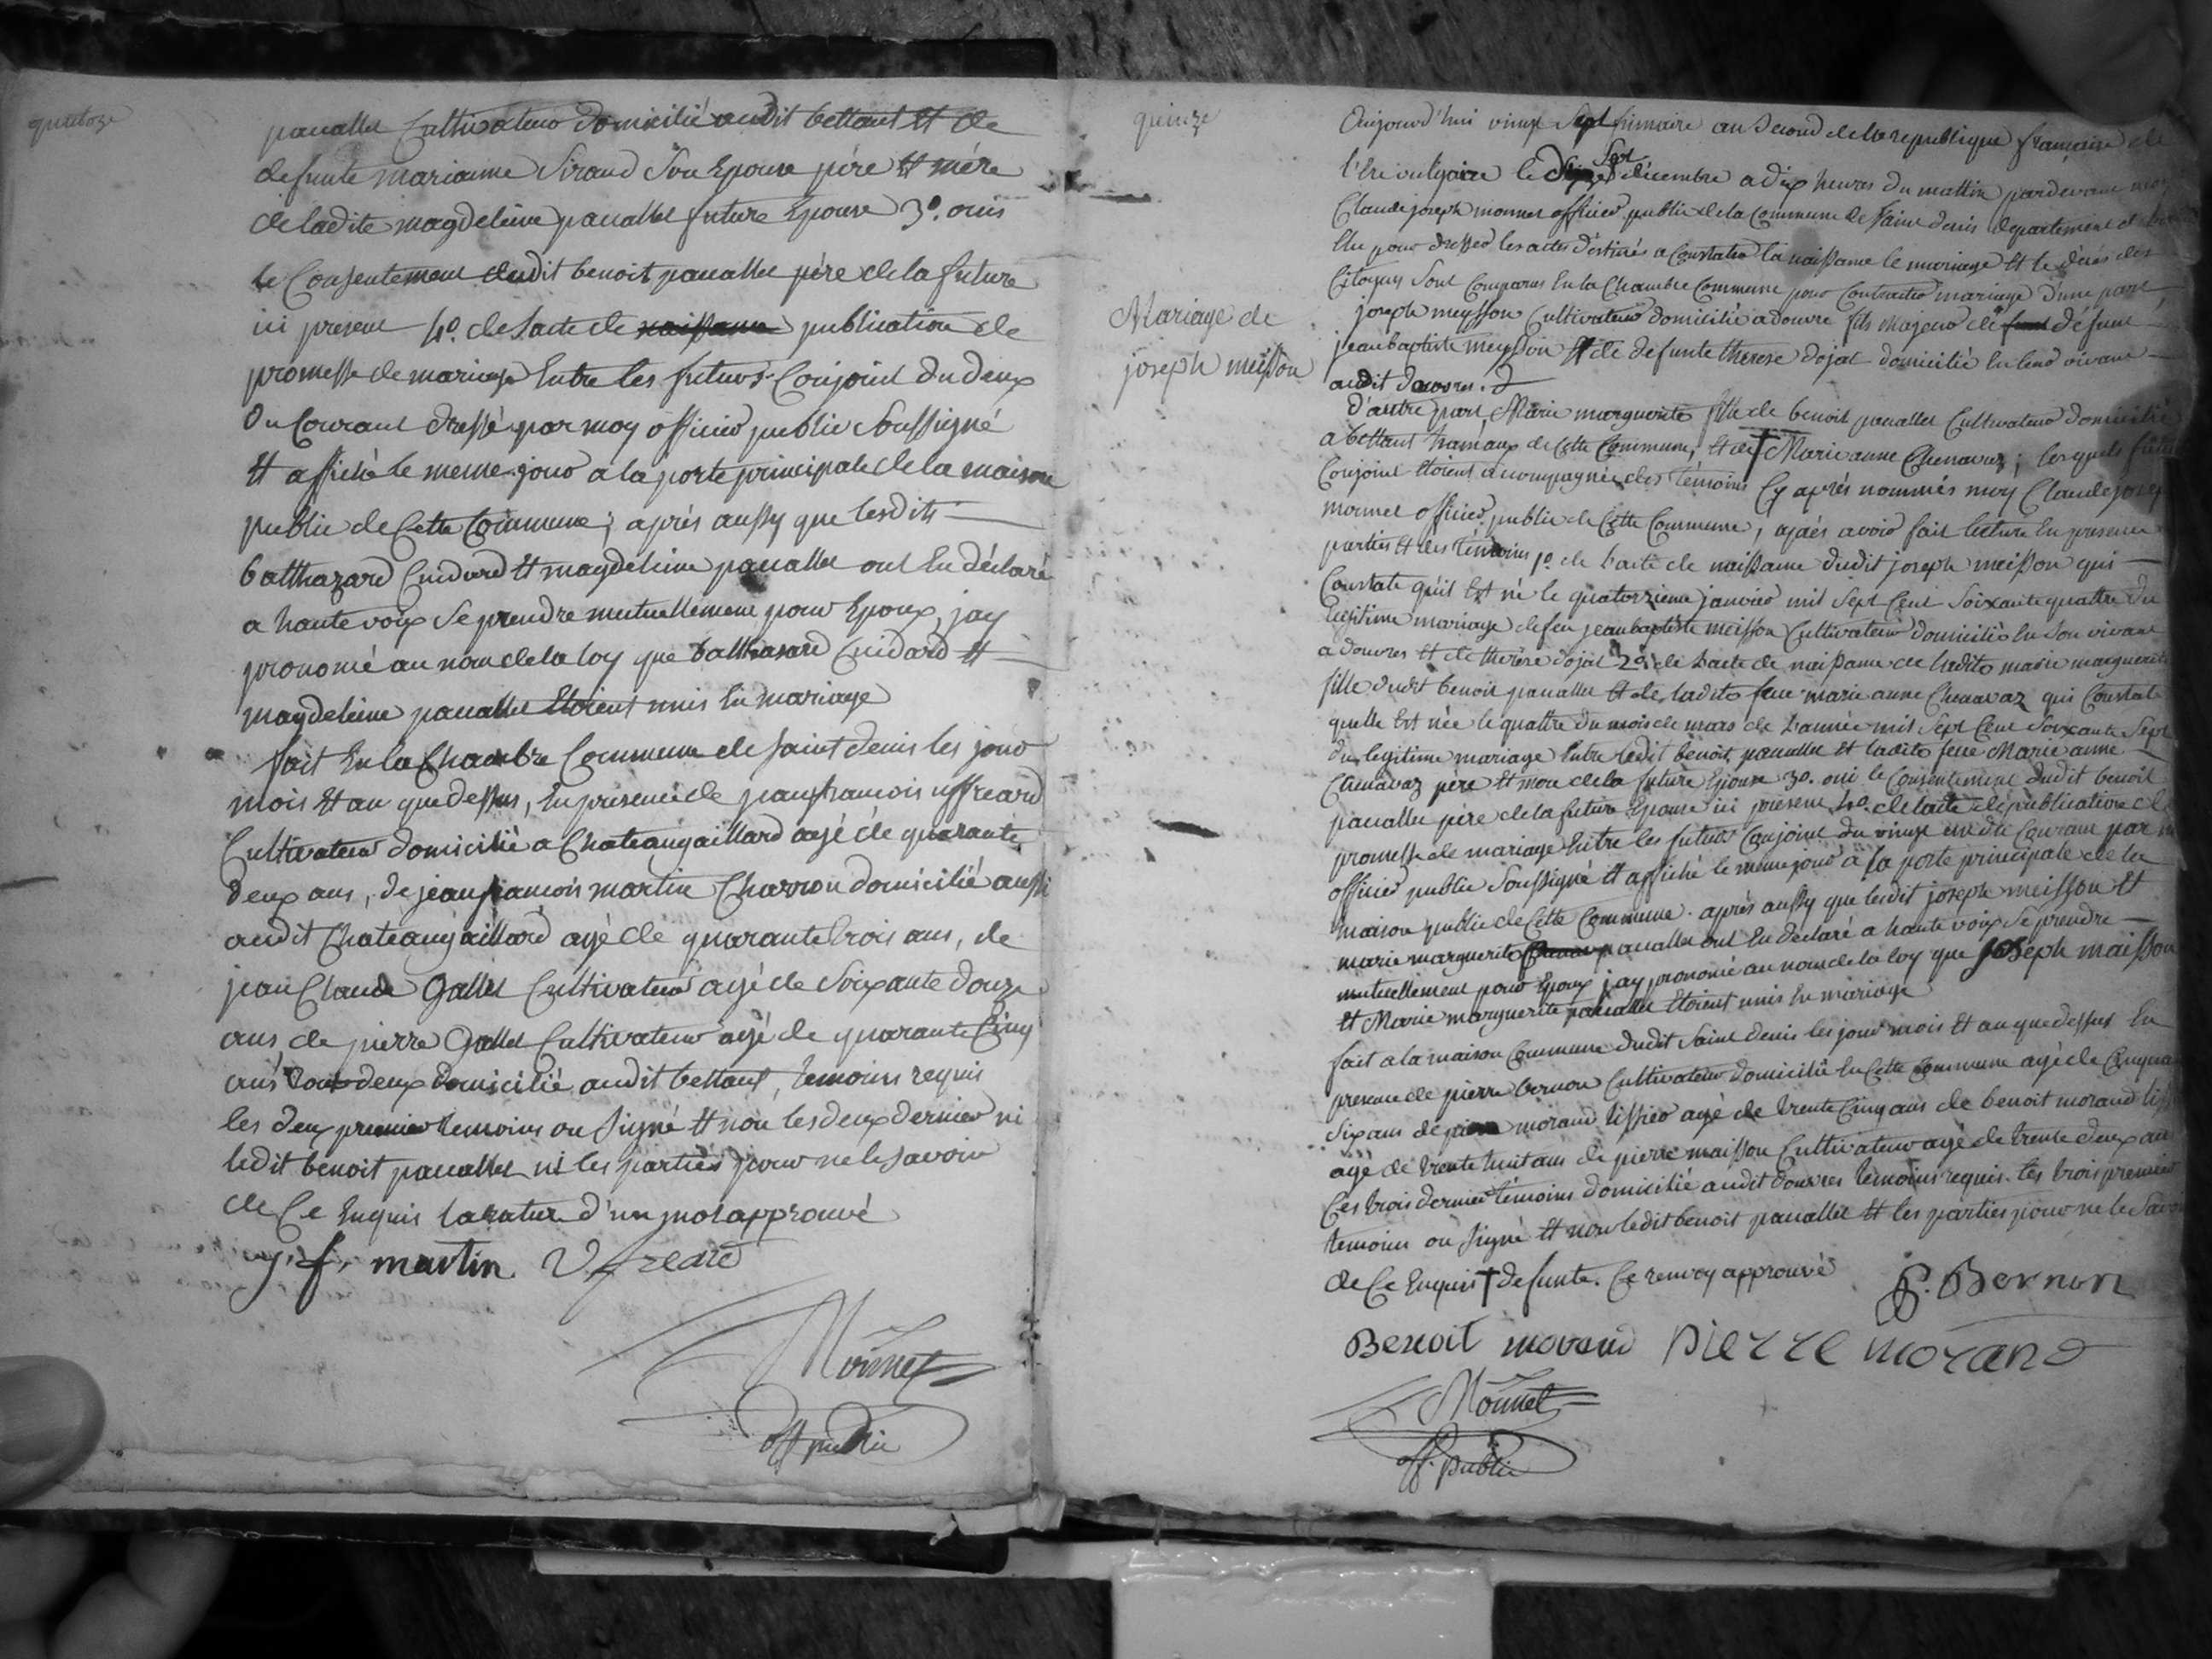 quatorze
panallet Cultivateur domicilié audit bettant Et de
defunte marianne Sirand Son Epouse père Et mère
de ladite magdeleine panallet future Epouse 3o. ouis
le Consentement dudit benoit panallet père de la future
ici present 4o. de lacte de naissance publication de
promesse de mariage Entre les futurs Conjoint du deux
du Courant dressé par moy officier public Soussigné
Et affiché le meme jour a la porte principale de la maison
public de Cette Commune; après aussy que lesdits
balthazard Cuidard Et magdeleine panallet ont Eu déclaré
a haute voix Se prendre mutuellement pour Epoux, jay
prononcé au nom de la loy que balthasard Cuidard Et
magdeleine panallet Etoient unis En mariage
fait En la Chambre Commune de Saint denis les jour
mois Et an que dessus, En presence de jean francois uffreard
Cultivateur domicilié a Chateaugaillard agé de quarante
deux ans, de jean francois martin Charron domicilié aussi
audit Chateaugaillard agé de quarante trois ans, de
jean Claude Gallet Cultivateur agé de Soixante douze
ans de pierre Gallet Cultivateur agé de quarante Cinq
ans tout deux domicilié audit bettant, temoins requis
les deux premier temoins on Signé Et non les deux dernier ni
ledit benoit panallet ni les parties pour ne le Savoir
de Ce Enquis la rature d'un mot approuvé
j. f. martin Uffreard
Monnet
off public
quinze
Mariage de
joseph meisson
Aujourd'hui vingt Sept frimaire an Second de la republique francaise de
l'Ere vulgaire le Sept décembre a dix heures du mattin pardevant moy
Claude joseph monnet officier public de la Commune de Saint denis departement de
Elu pour dresser les actes destinés a Constater la naissance le mariage Et le décés des
Citoyens Sont Comparus En la Chambre Commune pour Contracter mariage d'une part,
joseph meysson Cultivateur domicilié a douvre fils Majeur de defunt
jean baptiste meysson Et de defunte therese dojat domicilié En leur vivant
audit douvres.
d'autre part Marie marguerite fille de benoit panallet Cultivateur domicilié
a bettant hameaux de Cette Commune, Et de † Marie anne Chenavaz; lesquels futurs
Conjoint Etoient acompagnée des témoins Cy après nommés moy Claude joseph
monnet officier public de Cette Commune, après avoir fait lecture En presence
parties Et des témoins 1o. de lacte de naissance dudit joseph meisson qui
Constate qu'il Est né le quatorzieme janvier mil Sept Cent Soixante quattre du
Legitime mariage de feu jean baptiste meisson Cultivateur domicilié En Son vivant
a douvres Et de therèse dojat 2o. de Lacte de naissance de ladite marie marguerite
fille dudit benoit panallet Et de ladite feue marie anne Chenavaz qui Constate
quelle Est née le quattre du mois de mars de Lannée mil Sept Cent Soixante Sept
du legitime mariage Entre ledit benoit panallet Et ladite feue Marie anne
Chenavaz père Et mere de la future Epouse 3o. oui le Consentement dudit benoit
panallet père de la future Epouse ici present 4o. de lacte de publication de
promesse de mariage Entre les futurs Conjoint du vingt un du Courant par
officier public Soussigné Et affiché le meme jour a la porte principale de la
maison public de Cette Commune. après aussy que ledit joseph meisson Et
marie marguerite panallet ont Eu declaré a haute voix Se prendre
mutuellement pour Epoux jay prononcé au nom de la loy que joseph maisson
Et Marie marguerite panallet Etoient unis En mariage
fait a la maison Commune dudit Saint denis les jour mois Et an que dessus En
presence de pierre bernon Cultivateur domicilié En Cette Commune agé de Cinquante
Six ans de pierre morand tissier agé de trente Cinq ans de benoit morand
agé de trente huit ans de pierre maisson Cultivateur agé de trente deux ans
Ces trois dernier témoins domicilié audit douvres temoins requis. les trois premier
temoins on Signé Et non ledit benoit panallet Et les parties pour ne le Savoir
de Ce Enquis † defunte. Ce renvoy approuvé
P. Bernon
Benoit morand pierre morand
Monnet
off. public